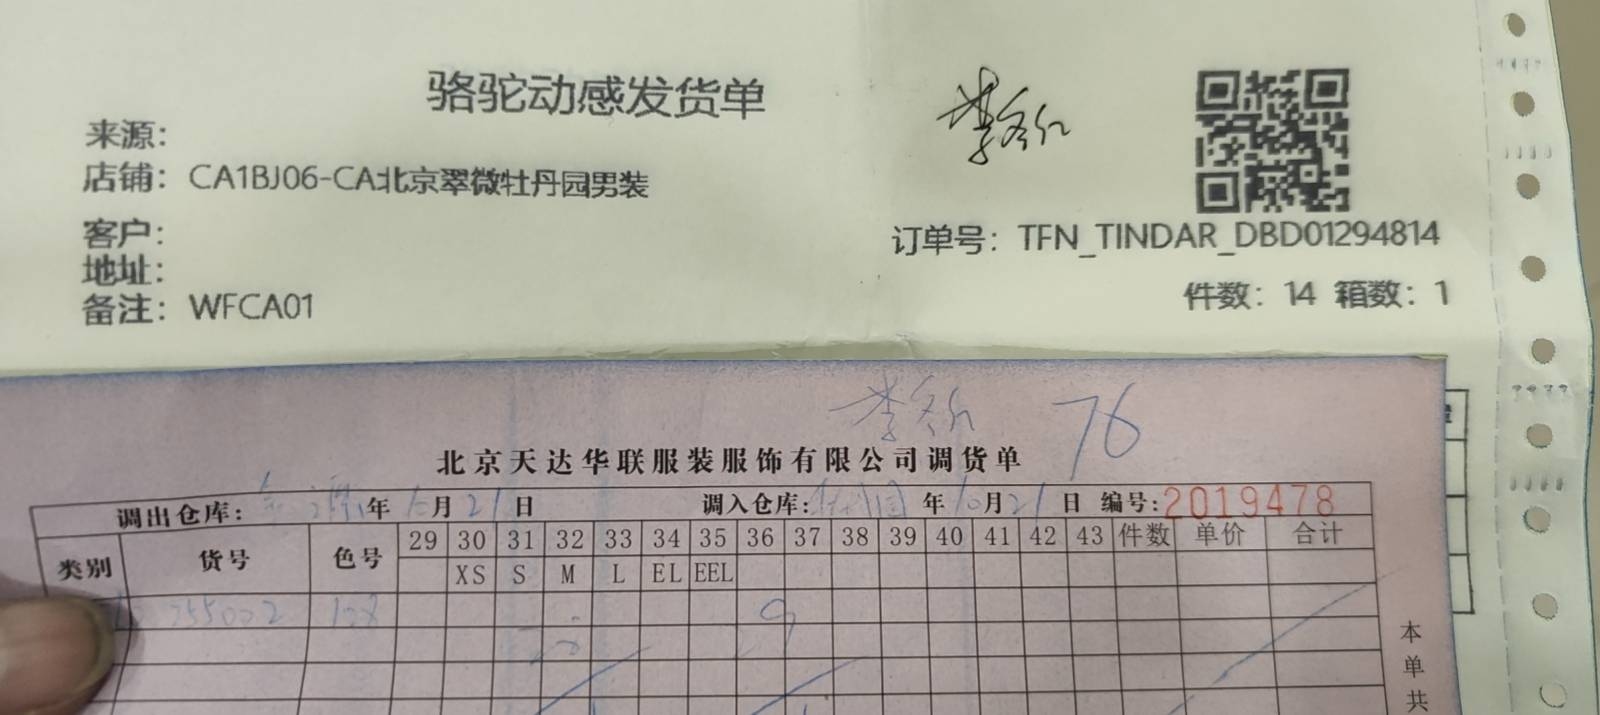 骆驼动感发货单
来源：
店铺：CA1BJ06-CA北京翠微牡丹园男装
客户：
地址：
备注：WFCA01
订单号：TFN_TINDAR_DBD01294814
件数：14 箱数：1
76
北京天达华联服装服饰有限公司调货单
调出仓库： 年 月21日 调入仓库： 年10月21日 编号:2019478
类别 货号 色号 29 30 31 32 33 34 35 36 37 38 39 40 41 42 43 件数 单价 合计
XS S M L EL EEL
本单共